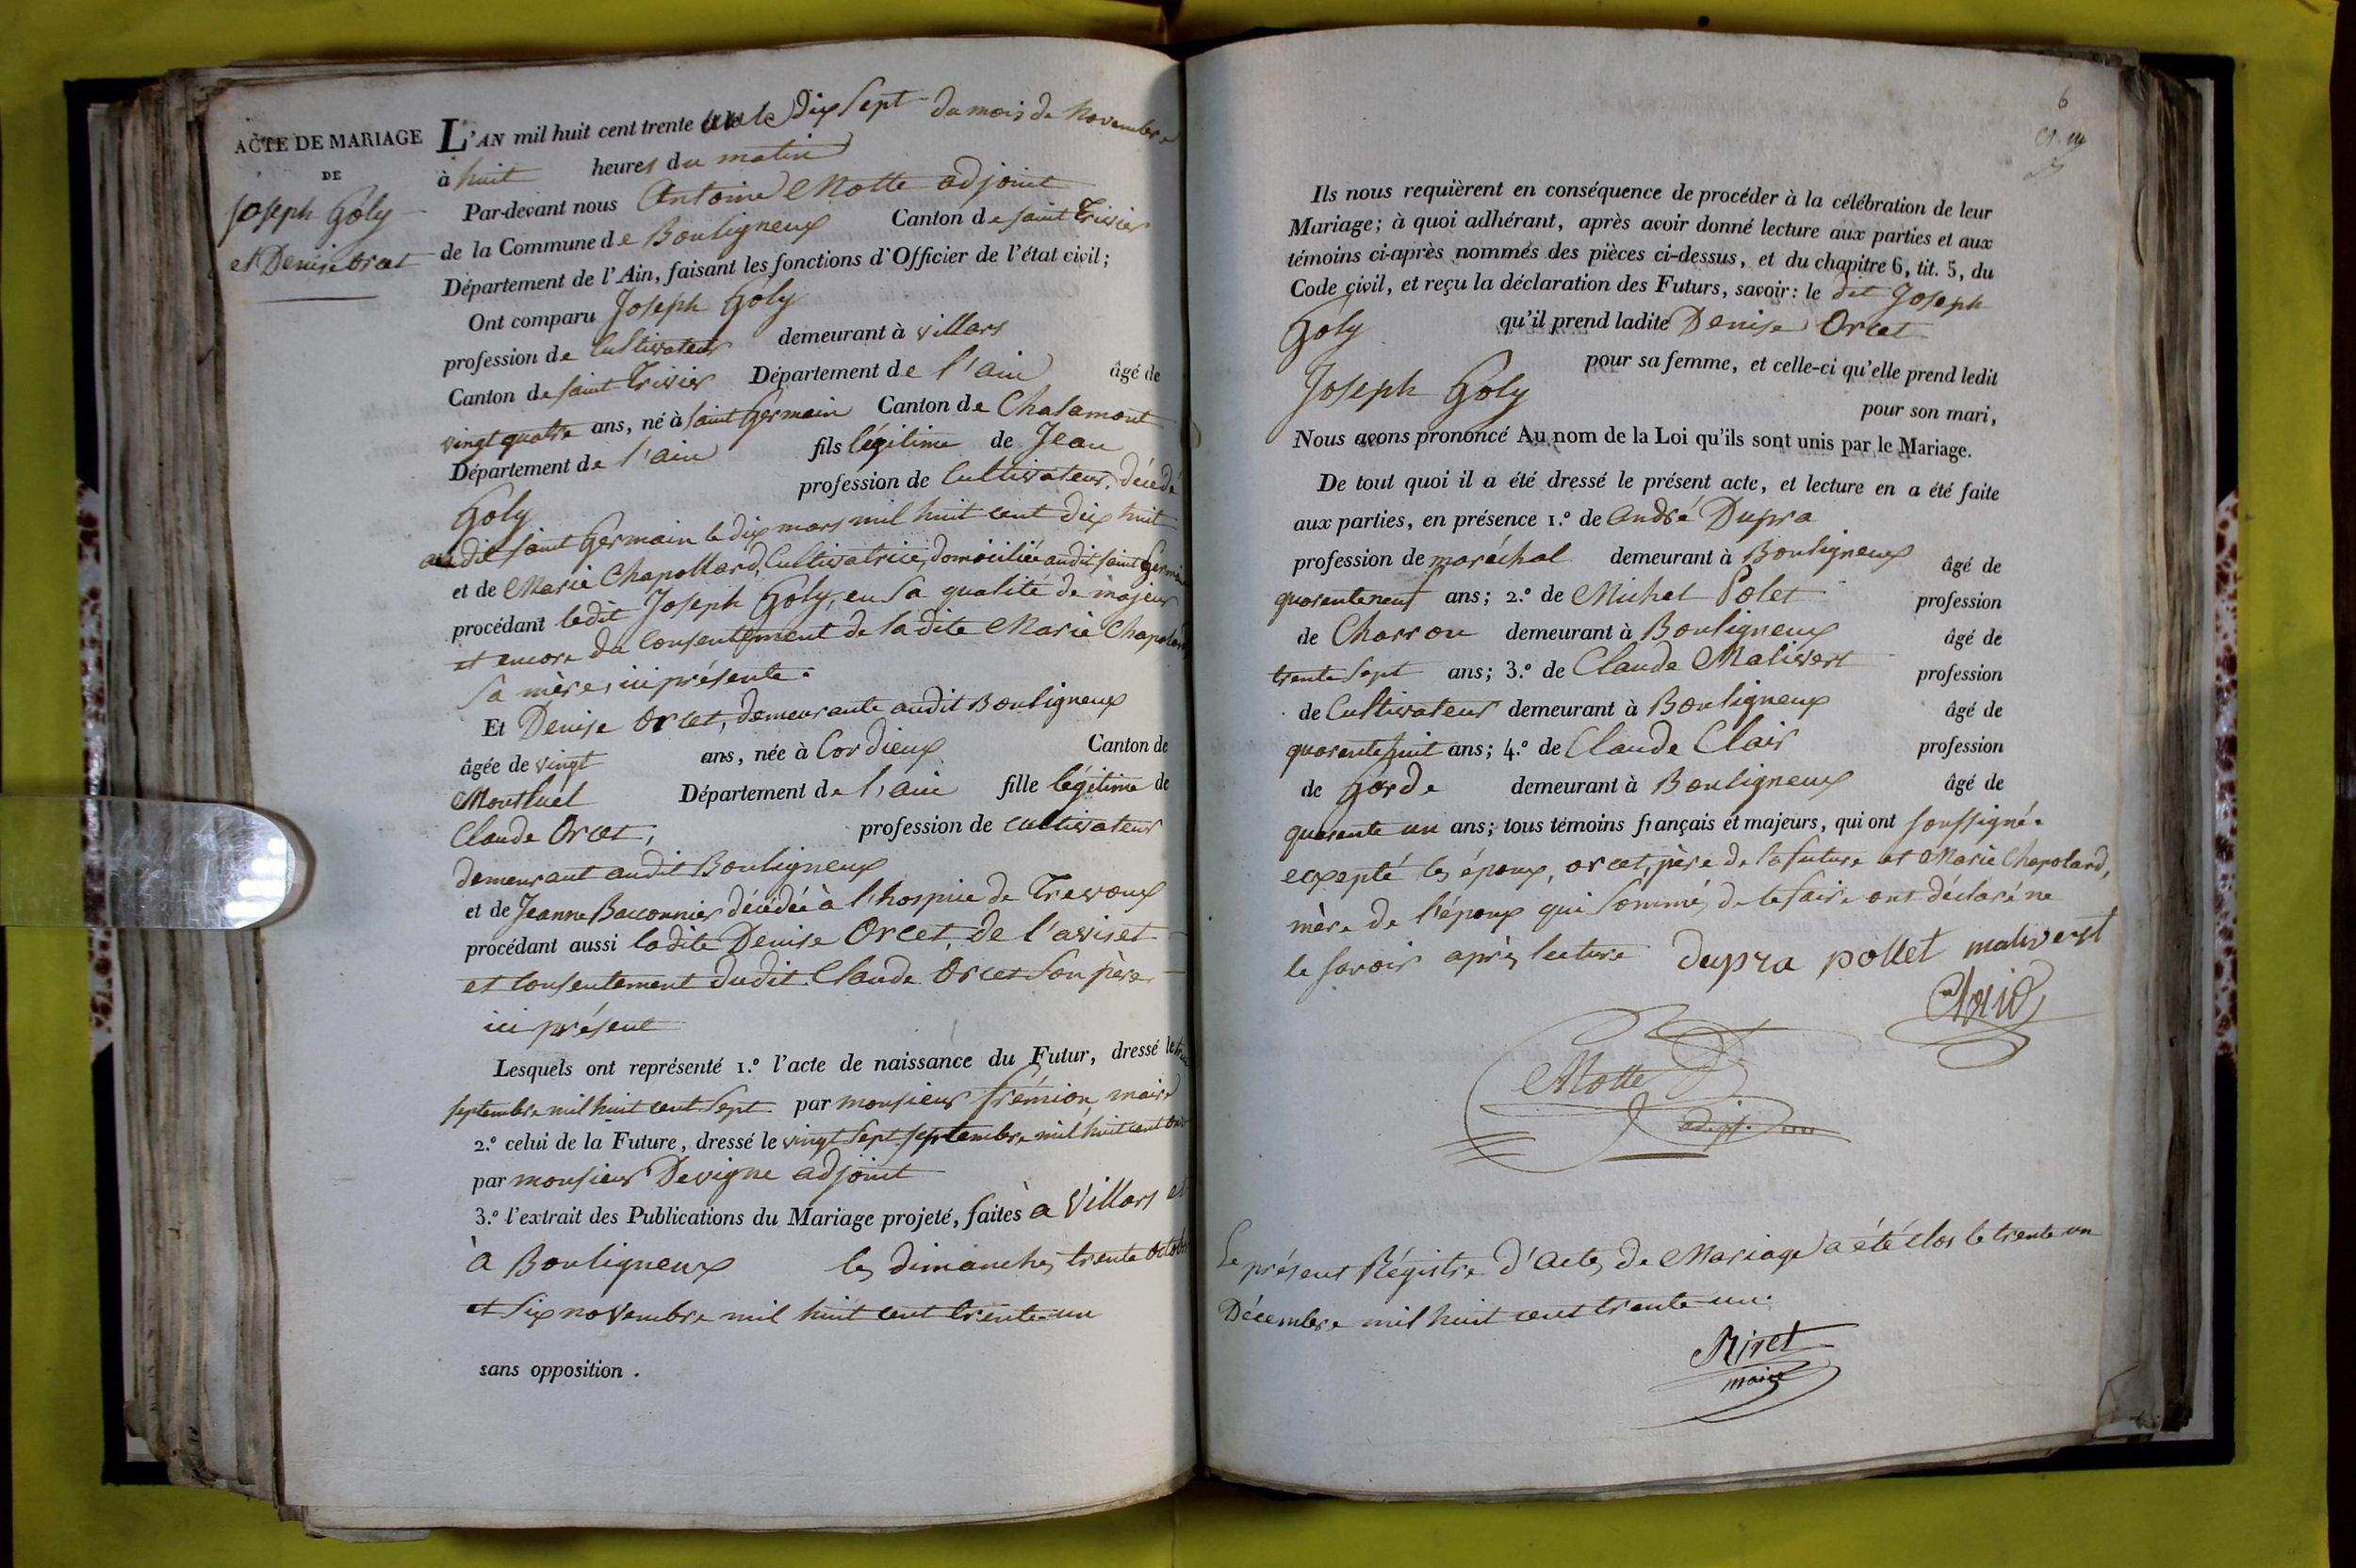 ACTE DE MARIAGE
DE
Joseph Goly
et Denise Orcet
L'AN mil huit cent trente un le Dix Sept du mois de Novembre
à huit heures du matin
Par-devant nous Antoine Motte adjoint
de la Commune de Bouligneux Canton de Saint Trivier
Département de l'Ain, faisant les fonctions d'Officier de l'état civil;
Ont comparu Joseph Goly
profession de Cultivateur demeurant à Villars
Canton de Saint Trivier Département de l'ain âgé de
vingt quatre ans, né à Saint Germain Canton de Chalamont
Département de l'ain fils légitime de Jean
Goly profession de Cultivateur, décédé
audit Saint Germain le dix mars mil huit cent dix huit
et de Marie Chapollard, Cultivatrice, domiciliée audit Saint Germain
procédant ledit Joseph Goly, en sa qualité de majeur
et encore du consentement de ladite Marie Chapolard
sa mère, ici présente.
Et Denise Orcet, demeurante audit Bouligneux
âgée de vingt ans, née à Cordieux Canton de
Montluel Département de l'ain fille légitime de
Claude Orcet, profession de cultivateur
demeurant audit Bouligneux
et de Jeanne Bacconnier décédée à l'hospice de Trevoux
procédant aussi ladite Denise Orcet, de l'avis et
et consentement dudit Claude Orcet son père
ici présent
Lesquels ont représenté 1.º l'acte de naissance du Futur, dressé le
septembre mil huit cent sept par monsieur frémion maire
2.º celui de la Future, dressé le vingt sept septembre mil huit cent onze
par monsieur Devigne adjoint
3.º l'extrait des Publications du Mariage projeté, faites à Villars et
à Bouligneux les dimanches trente octobre
et six novembre mil huit cent trente un
sans opposition.
6
Ils nous requièrent en conséquence de procéder à la célébration de leur
Mariage; à quoi adhérant, après avoir donné lecture aux parties et aux
témoins ci-après nommés des pièces ci-dessus, et du chapitre 6, tit. 5, du
Code civil, et reçu la déclaration des Futurs, savoir: le dit Joseph
Goly qu'il prend ladite Denise Orcet
pour sa femme, et celle-ci qu'elle prend ledit
Joseph Goly pour son mari,
Nous avons prononcé Au nom de la Loi qu'ils sont unis par le Mariage.
De tout quoi il a été dressé le présent acte, et lecture en a été faite
aux parties, en présence 1.º de André Dupra
profession de maréchal demeurant à Bouligneux âgé de
quarante neuf ans; 2.º de Michel Polet profession
de Charron demeurant à Bouligneux âgé de
trente sept ans; 3.º de Claude Malivert profession
de Cultivateur demeurant à Bouligneux âgé de
quarante huit ans; 4.º de Claude Clair profession
de Garde demeurant à Bouligneux âgé de
quarante un ans; tous témoins français et majeurs, qui ont soussigné.
excepté les époux, orcet, père de la future et Marie Chapolard,
mère de l'époux qui sommés de le faire ont déclaré ne
le savoir après lecture Dupra pollet malivert
Clair
Motte
adjt.
Le présent Régistre d'actes de Mariage a été clos le trente un
Décembre mil huit cent trente un.
Rivet
maire